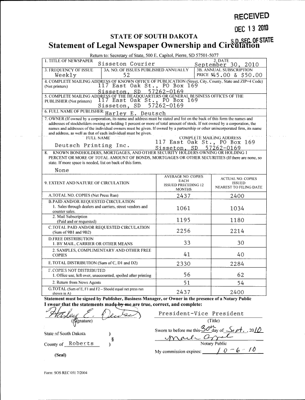 RECEIVED
DEC 13 2010
S.D. SEC. OF STATE
STATE OF SOUTH DAKOTA
Statement of Legal Newspaper Ownership and Circulation
Return to: Secretary of State, 500 E. Capitol, Pierre, SD 57501-5077
1. TITLE OF NEWSPAPER
Sisseton Courier
2. DATE
September 30, 2010
3. FREQUENCY OF ISSUE
Weekly
3A. NO. OF ISSUES PUBLISHED ANNUALLY
52
3B. ANNUAL SUBSCRIPTION
PRICE $45.00 & $50.00
4. COMPLETE MAILING ADDRESS OF KNOWN OFFICE OF PUBLICATION (Street, City, County, State and ZIP+4 Code)
(Not printers)
117 East Oak St., PO Box 169
Sisseton, SD 57262-0169
5. COMPLETE MAILING ADDRESS OF THE HEADQUARTERS OR GENERAL BUSINESS OFFICES OF THE
PUBLISHER (Not printers)
117 East Oak St., PO Box 169
Sisseton, SD 57262-0169
6. FULL NAME OF PUBLISHER:
Harley E. Deutsch
7. OWNER (If owned by a corporation, its name and address must be stated and list on the back of this form the names and
addresses of stockholders owning or holding 1 percent or more of total amount of stock. If not owned by a corporation, the
names and addresses of the individual owners must be given. If owned by a partnership or other unincorporated firm, its name
and address, as well as that of each individual must be given.)
FULL NAME
COMPLETE MAILING ADDRESS
Deutsch Printing Inc.
117 East Oak St., PO Box 169
Sisseton, SD 57262-0169
8. KNOWN BONDHOLDERS, MORTGAGES, AND OTHER SECURITY HOLDERS OWNING OR HOLDING 1
PERCENT OR MORE OF TOTAL AMOUNT OF BONDS, MORTGAGES OR OTHER SECURITIES (If there are none, so
state. If more space is needed, list on back of this form.
None
9. EXTENT AND NATURE OF CIRCULATION
AVERAGE NO. COPIES EACH ISSUED PRECEDING 12 MONTHS
ACTUAL NO. COPIES ISSUED NEAREST TO FILING DATE
A. TOTAL NO. COPIES (Net Press Run)
2437
2400
B. PAID AND/OR REQUESTED CIRCULATION
1. Sales through dealers and carriers, street vendors and
counter sales
1061
1034
2. Mail Subscription
(Paid and/or requested)
1195
1180
C. TOTAL PAID AND/OR REQUESTED CIRCULATION
(Sum of 9B1 and 9B2)
2256
2214
D. FREE DISTRIBUTION
1. BY MAIL, CARRIER OR OTHER MEANS
33
30
2. SAMPLES, COMPLIMENTARY AND OTHER FREE
COPIES
41
40
E. TOTAL DISTRIBUTION (Sum of C, D1 and D2)
2330
2284
F. COPIES NOT DISTRIBUTED
1. Office use, left over, unaccounted, spoiled after printing
56
62
2. Return from News Agents
51
54
G. TOTAL (Sum of E, F1 and F2 - Should equal net press run
shown in A)
2437
2400
Statement must be signed by Publisher, Business Manager, or Owner in the presence of a Notary Public
I swear that the statements made by me are true, correct, and complete:
Harley E. Deutsch
(Signature)
President-Vice President
(Title)
State of South Dakota
County of Roberts
(Seal)
Sworn to before me this 30th day of Sept., 2010
Notary Public
My commission expires: 10-6-10